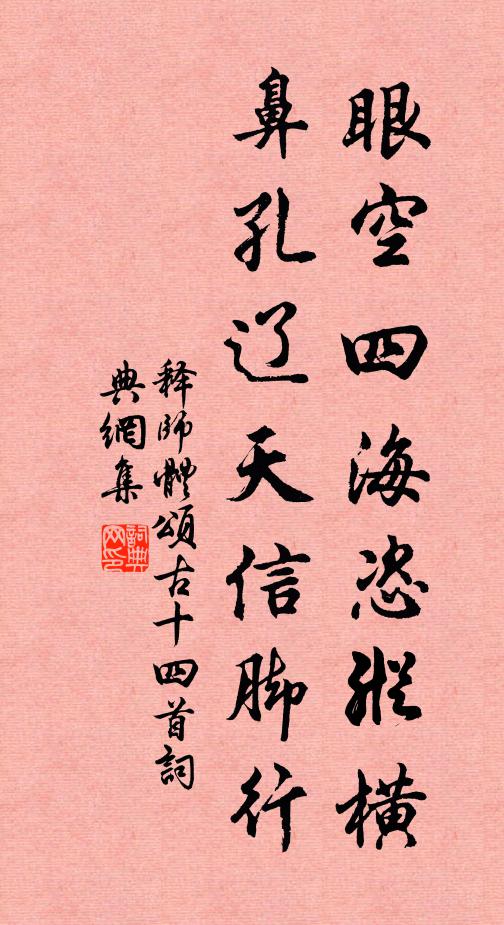 眼空四海恣縱橫
鼻孔辽天信脚行
释師體頌古十四首詞
典網集
詞典
网印